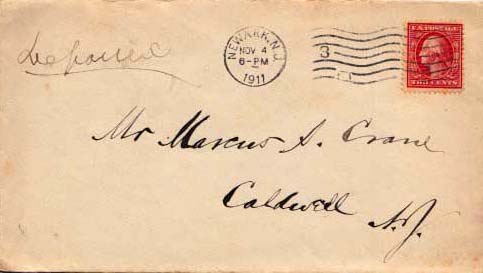 NEWARK, N.J.
NOV 4
6-PM
1911
3
U.S. POSTAGE
TWO CENTS
Mr Marcus S. Crane
Caldwell
N.J.